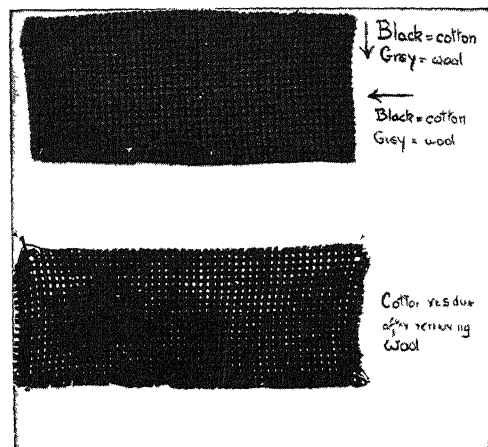 Black = cotton
Grey = wool
Black = cotton
Grey = wool
Cotton residue
after removing
Wool